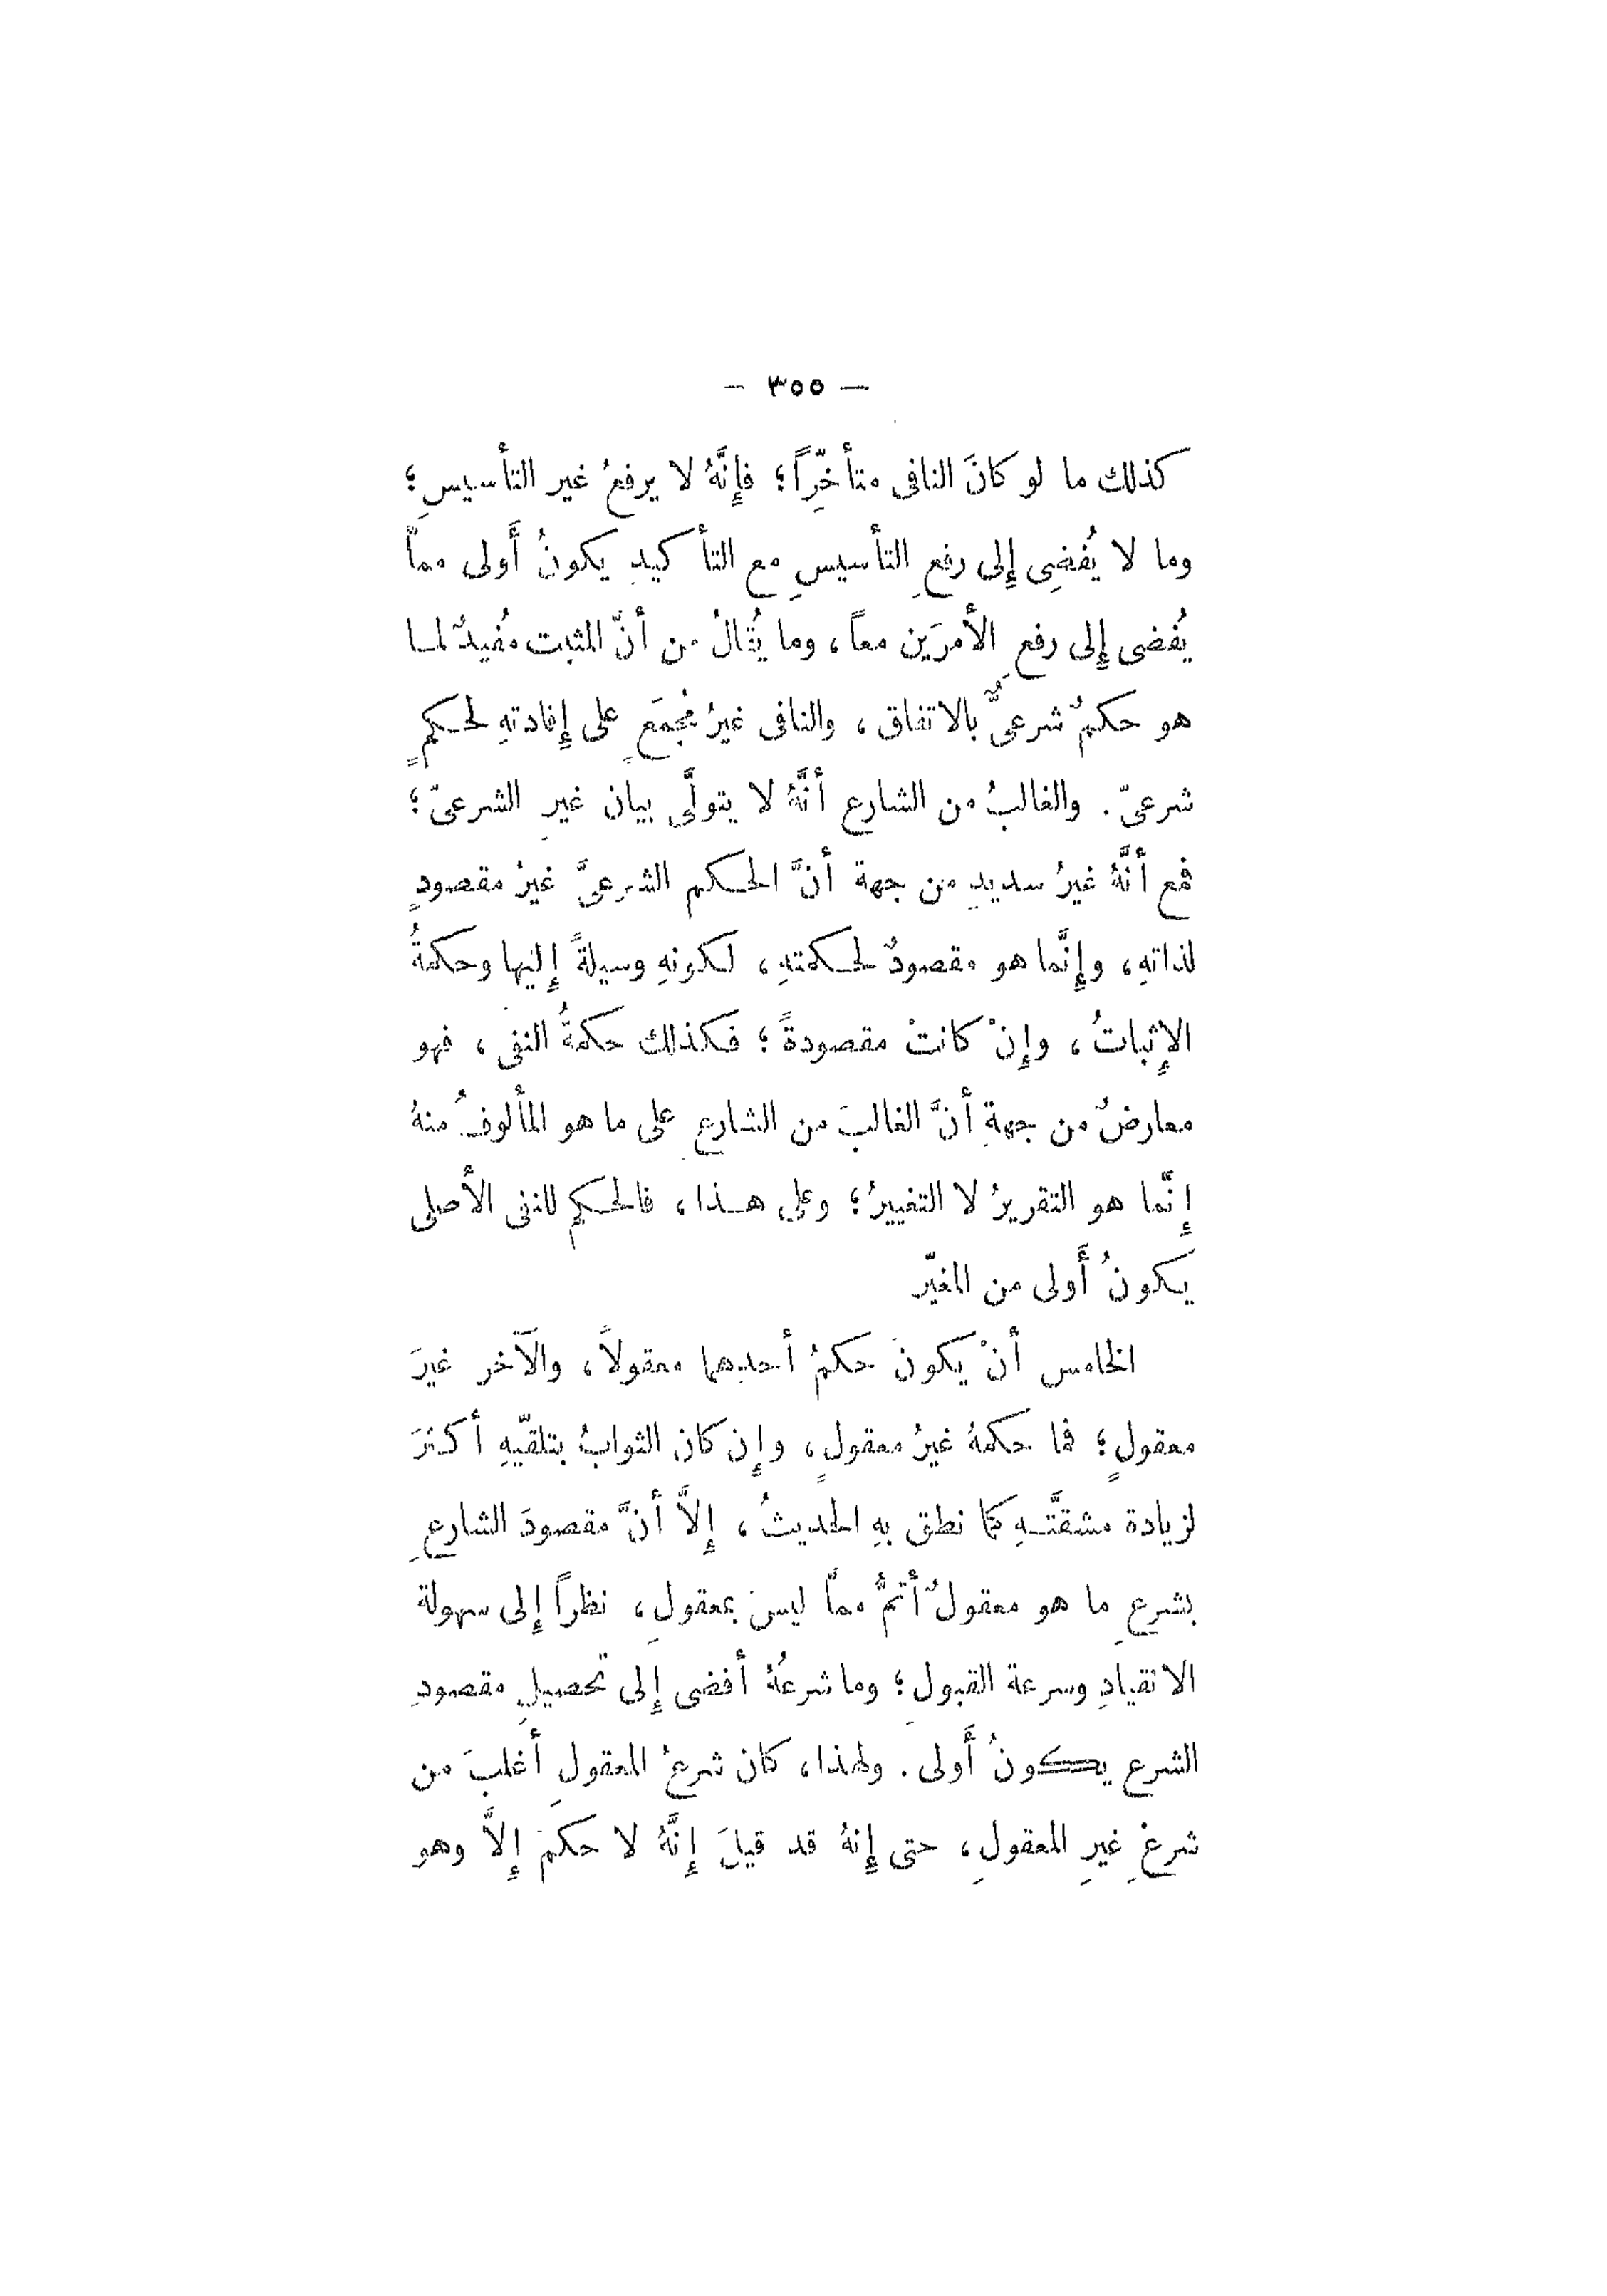 — ٣٥٥ —
كذلك ما لو كانَ النافى متأخّرِاً؛ فإِنَّهُ لا يرفعُ غير التأسيسِ؛
وما لا يُفضِى إِلى رفعِ التأسيسِ مع التأكيدِ يكونُ أَولى مماَّ
يُفضى إِلى رفعِ الأمرَين معاً، وما يُقالُ من أنّ المثبت مُفيدٌ لما
هو حكمٌ شرعىٌّ بالاتفاق، والنافى غيرُ مُجمَعٍ على إِفادتهِ لحكمٍ
شرعىّ. والغالبُ من الشارع أنَّهُ لا يتولَّى بيان غيرِ الشرعىّ؛
فمع أنَّهُ غيرُ سديدٍ من جهة أنَّ الحكم الشرعىَّ غيرُ مقصودٍ
لذاتهِ، وإِنَّما هو مقصودٌ لحكمتهِ، لكونهِ وسيلةً إِليها وحكمةُ
الإِثباتُ، وإِنْ كانتْ مقصودةً؛ فكذلك حكمةُ النفى، فهو
معارضٌ من جهةِ أنَّ الغالبَ من الشارعِ على ما هو المألوفُ منهُ
إِنَّما هو التقريرُ لا التغييرُ؛ وعلى هذا، فالحكم للنفى الأصلى
يكونُ أَولى من المغيّر
الخامس أنْ يكونَ حكمُ أحدهما معقولاً، والآخر غيرَ
معقولٍ؛ فما حكمهُ غيرُ معقولٍ، وإِن كان الثوابُ بتلقيّهِ أكثرَ
لزيادة مشقتَّهِ كما نطق بهِ الحديثُ، إِلاَّ أنَّ مقصودَ الشارعِ
بشرعِ ما هو معقولٌ أتمُّ مماَّ ليسَ بمعقولِ، نظراً إِلى سهولة
الانقيادِ وسرعة القبولِ؛ وما شرعُهُ أفضى إِلى تحصيلِ مقصودِ
الشرع يكونُ أَولى. ولهذا، كان شرعُ المعقولِ أغلبَ من
شرعِ غيرِ المعقولِ، حتى إِنهُ قد قيلَ إِنَّهُ لا حكمَ إِلاَّ وهو